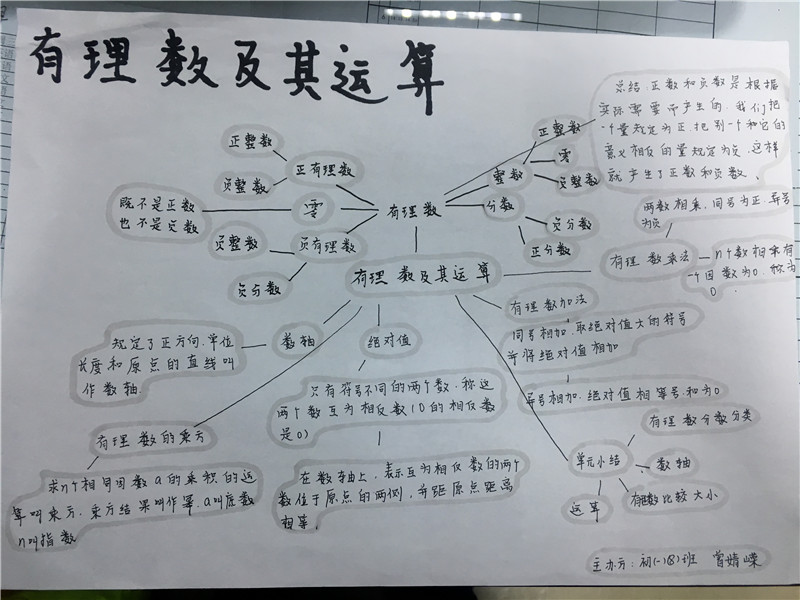 有理数及其运算
总结:正数和负数是根据
实际需要而产生的,我们把
一个量规定为正,把别一个和它的
意义相反的量规定为负,这样
就产生了正数和负数。
正整数
负整数
正有理数
既不是正数
也不是负数
零
负整数
负有理数
负分数
有理数
正整数
整数
零
负整数
分数
负分数
正分数
有理数及其运算
两数相乘,同号为正,异号
为负
有理数乘法
n个数相乘有
一个因数为0,积为
0.
有理数加法
同号相加,取绝对值大的符号
并将绝对值相加
异号相加,绝对值相等号,和为0
数轴
规定了正方向,单位
长度和原点的直线叫
作数轴.
绝对值
只有符号不同的两个数,称这
两个数互为相反数(0的相反数
是0)
在数轴上,表示互为相反数的两个
数位于原点的两侧,并距原点距离
相等。
有理数的乘方
求n个相同因数a的乘积的运
算叫乘方,乘方结果叫作幂,a叫底数
n叫指数
单元小结
有理数分数分类
数轴
有理数比较大小
运算
主办方:初(一)⑧班 曾婧嵘